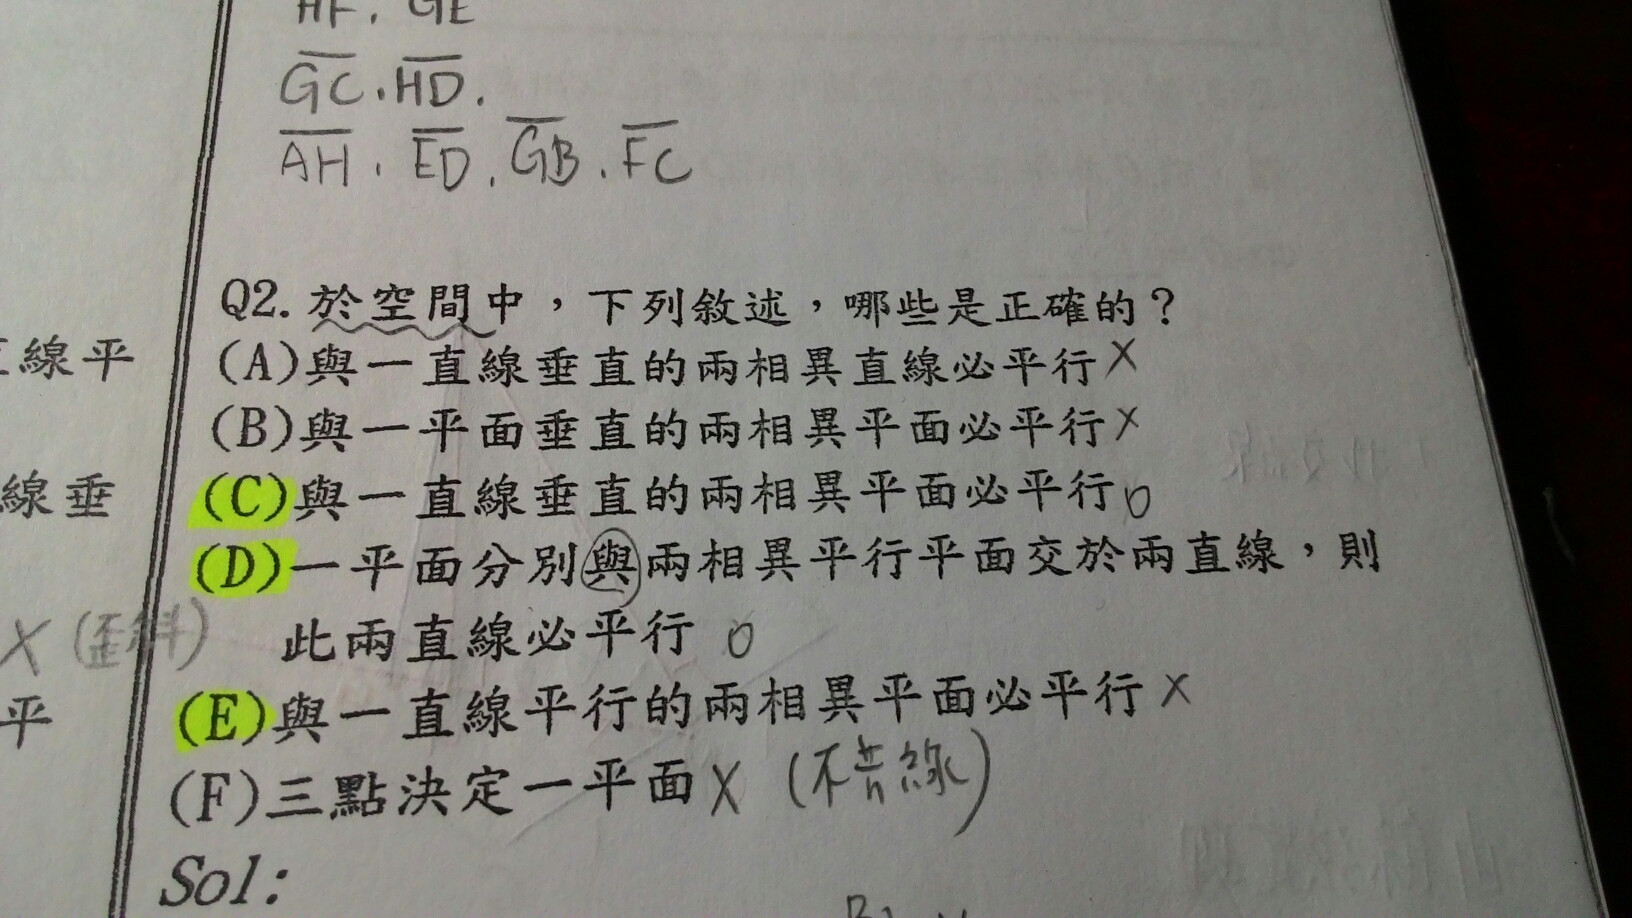 HF. GE
GC.HD.
AH. ED. GB. FC
Q2.於空間中,下列敘述,哪些是正確的?
線平
(A)與一直線垂直的兩相異直線必平行X
(B)與一平面垂直的兩相異平面必平行X
線垂
(C)與一直線垂直的兩相異平面必平行O
(D)一平面分別與兩相異平行平面交於兩直線,則
X(歪斜)
此兩直線必平行 O
平
(E)與一直線平行的兩相異平面必平行X
(F)三點決定一平面X (不共線)
Sol: